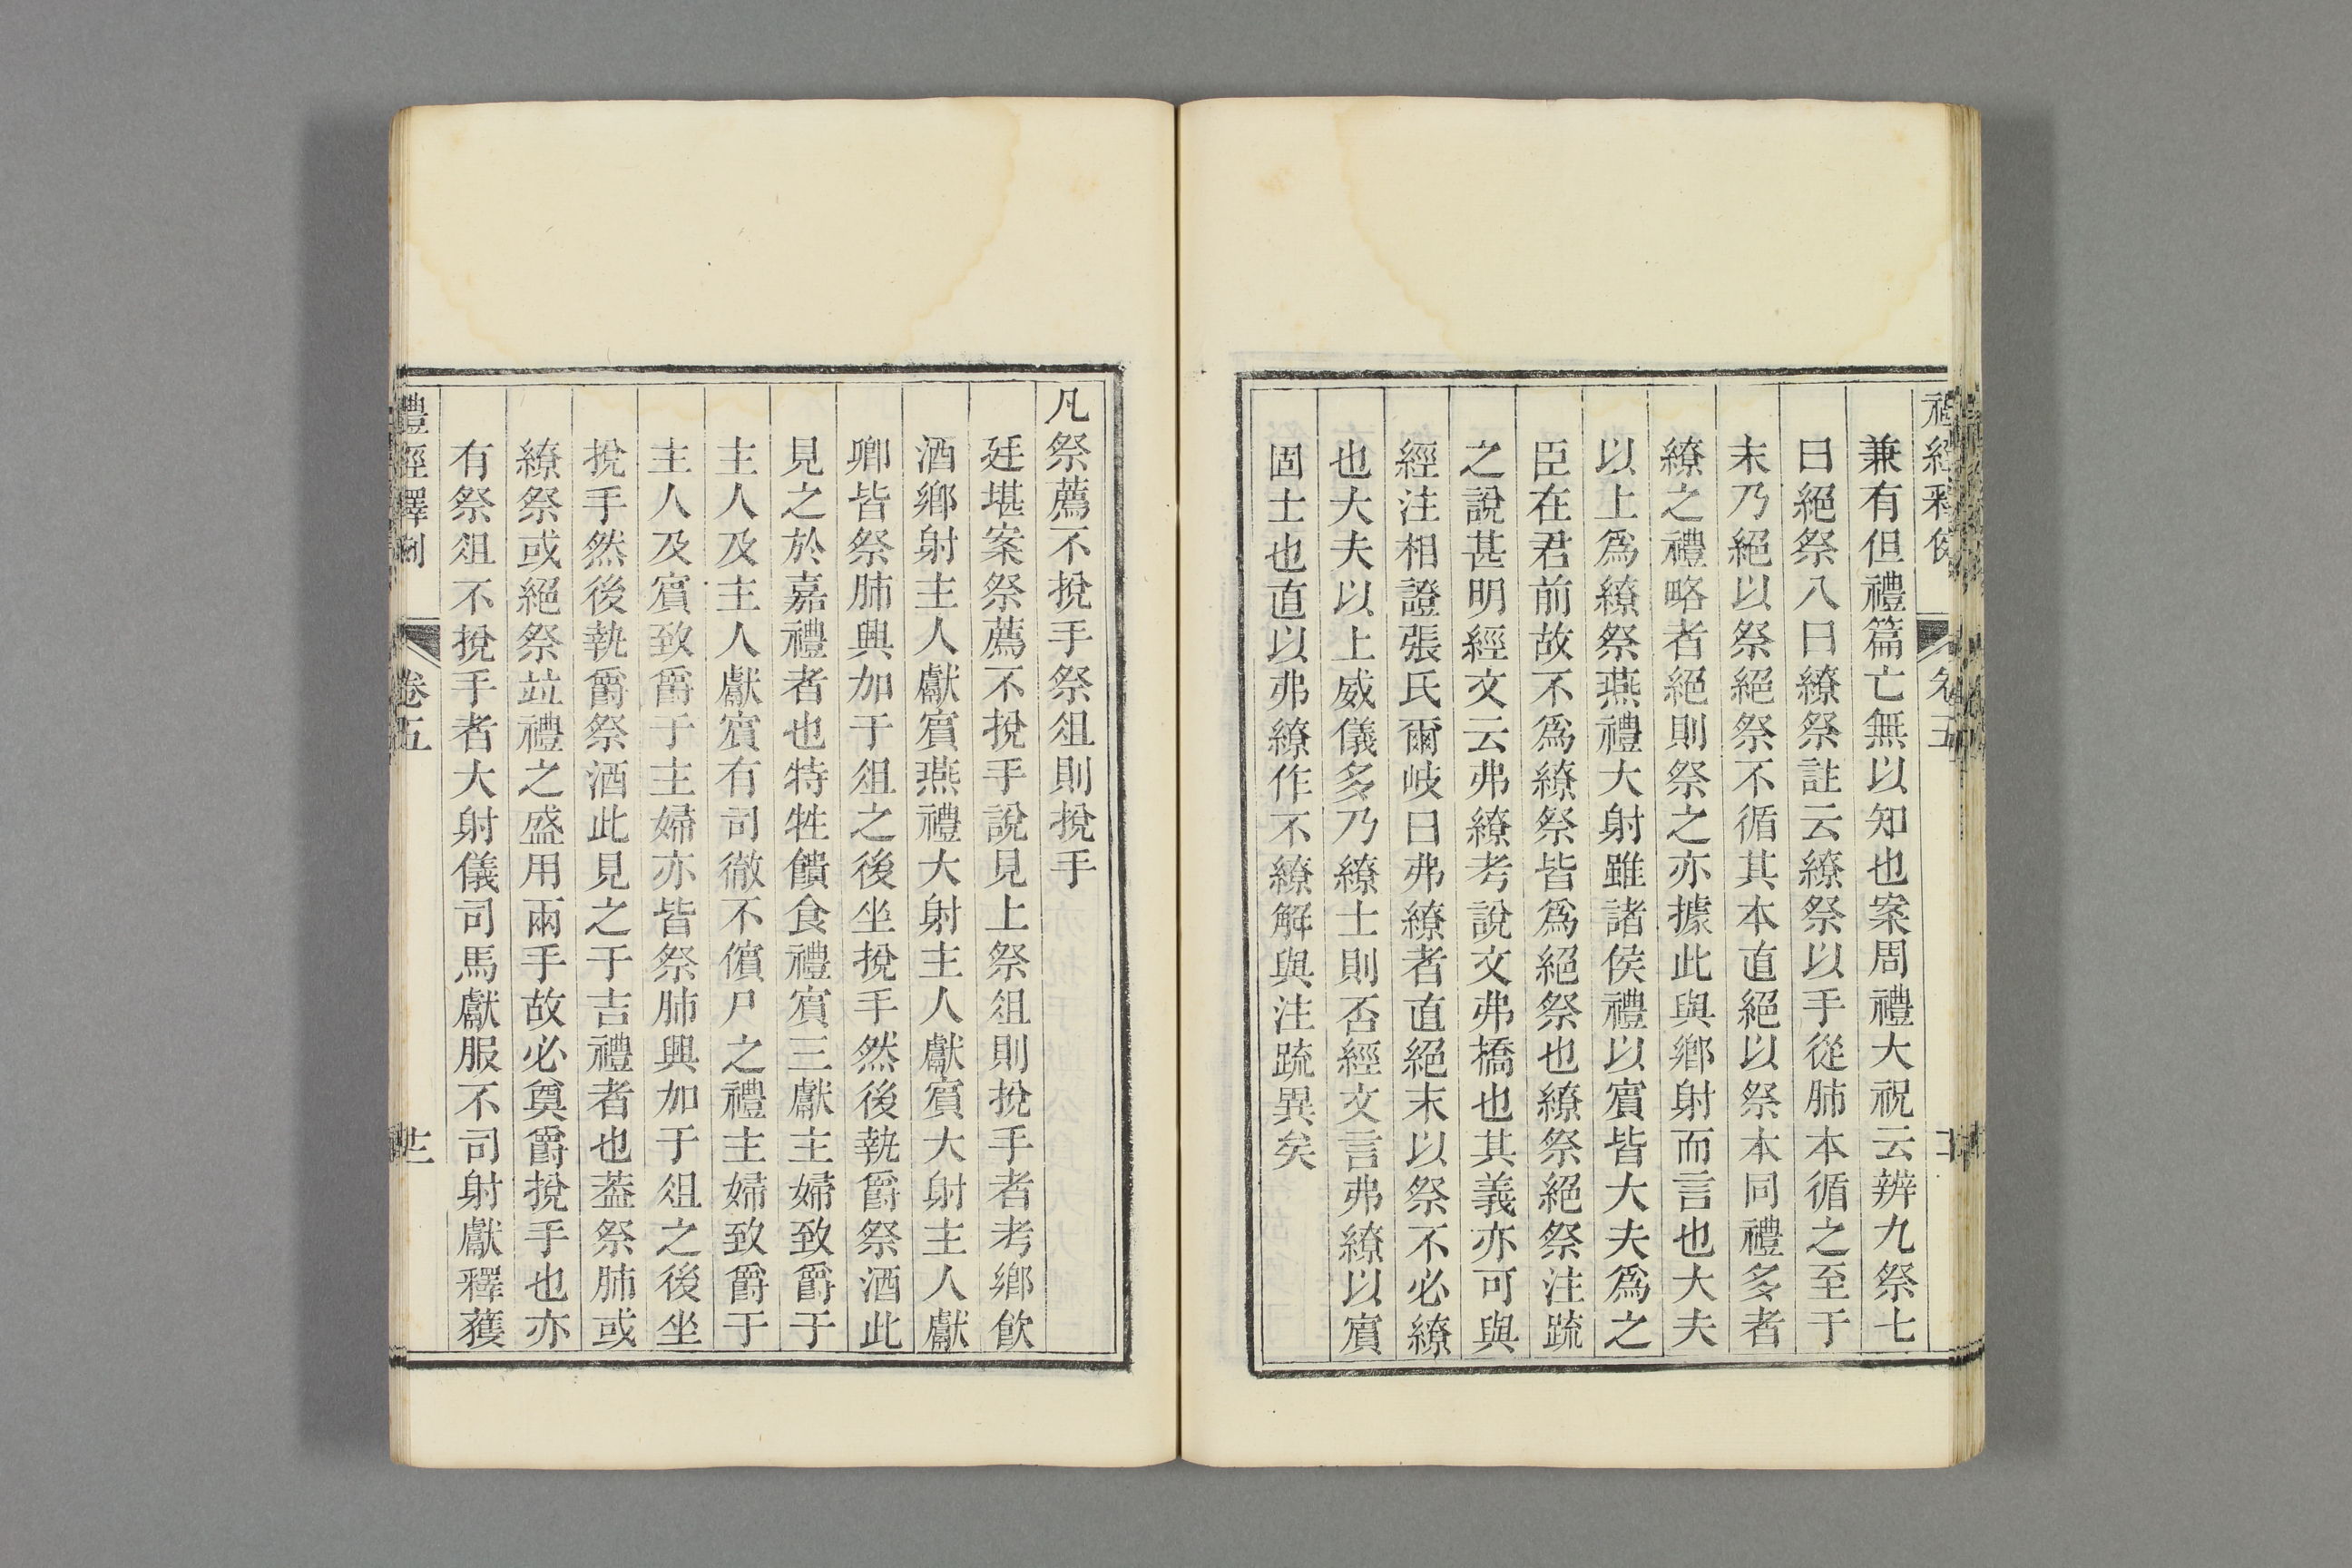 兼有但禮篇亡無以知也案周禮大祝云辨九祭七
曰絕祭八曰繚祭註云繚祭以手從肺本循之至于
末乃絕以祭絕祭不循其本直絕以祭本同禮多者
繚之禮略者絕則祭之亦據此與鄉射而言也大夫
以上爲繚祭燕禮大射雖諸侯禮以賓皆大夫爲之
臣在君前故不爲繚祭皆爲絕祭也繚祭絕祭注疏
之說甚明經文云弗繚考說文弗撟也其義亦可與
經注相證張氏爾岐曰弗繚者直絕末以祭不必繚
也大夫以上威儀多乃繚士則否經文言弗繚以賓
固士也直以弗繚作不繚解與注疏異矣
凡祭薦不挩手祭俎則挩手
廷堪案祭薦不挩手說見上祭俎則挩手者考鄉飲
酒鄉射主人獻賓燕禮大射主人獻賓大射主人獻
卿皆祭肺興加于俎之後坐挩手然後執爵祭酒此
見之於嘉禮者也特牲饋食禮賓三獻主婦致爵于
主人及主人獻賓有司徹不儐尸之禮主婦致爵于
主人及賓致爵于主婦亦皆祭肺興加于俎之後坐
挩手然後執爵祭酒此見之于吉禮者也葢祭肺或
繚祭或絕祭竝禮之盛用兩手故必奠爵挩手也亦
有祭俎不挩手者大射儀司馬獻服不司射獻釋獲
禮經釋例 卷五